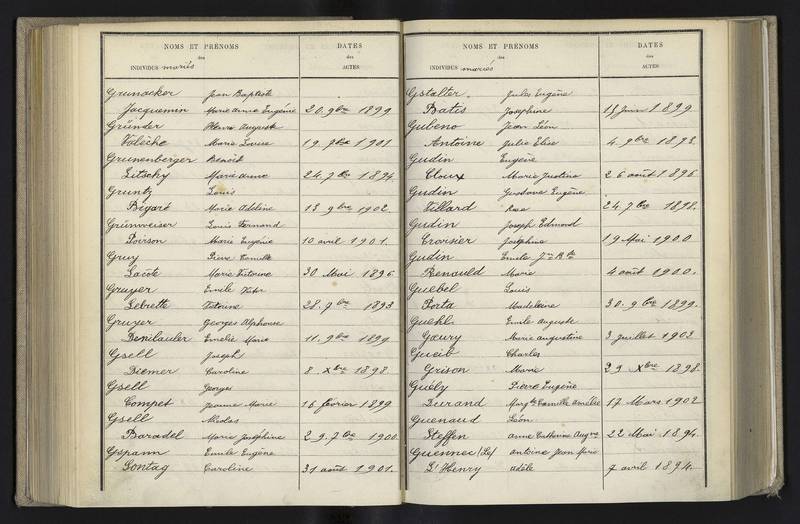 NOMS ET PRÉNOMS DATES
des des
INDIVIDUS mariés ACTES
Grunacker Jean Baptiste
Jacquemin Marie Anne Eugénie 20. 9bre 1899
Gründer Henri Auguste
Valèche Marie Louise 19. 7bre 1901.
Grunenberger Benoit
Litschy Marie Anne 24. 7bre 1894.
Gruntz Louis
Bigaré Marie Adeline 13 9bre 1902.
Grünweiser Louis Fernand
Poirson Marie Eugénie 10 avril 1901.
Gruy Pierre Camille
Lacôte Marie Victorine 30 Mai 1896
Gruyer Emile Victor
Lebrette Victorine 28. 7bre 1893
Gruyer Georges Alphonse
Denilauler Emélie Marie 11. 9bre 1899
Gsell Joseph
Diemer Caroline 8. Xbre 1898.
Gsell Georges
Compet Jeanne Marie 16 février 1899.
Gsell Nicolas
Baradel Marie Joséphine 29. 7bre 1900.
Gspann Emile Eugène
Sontag Caroline 31 août 1901.
NOMS ET PRÉNOMS DATES
des des
INDIVIDUS mariés ACTES
Gstalter. Jules Eugène
Batis Joséphine 13 Juin 1899.
Gubeno Jean Léon
Antoine Julie Elise 4. 9bre 1893.
Gudin Eugène
Cloux Marie Justine 26 août 1896
Gudin Gustave Eugène
Villard Rose 24. 7bre 1898.
Gudin Joseph Edmond
Croisier Joséphine 19 Mai 1900
Gudin Emile Jn Bte
Renauld Marie 4 août 1900.
Guebel Louis
Porta Madeleine 30. 9bre 1899.
Guehl Emile Auguste
Gœury Marie Augustine 3 juillet 1903
Gueib Charles
Grison Marie 29 Xbre 1898.
Guély Pierre Eugène
Durand Margte Camille Amélie 17 Mars 1902
Guenaud Léon
Steffen Anne Catherine Augne 22 Mai 1894.
Guennec (Le) Antoine Jean Marie
L'Henry Adèle 7 avril 1894.